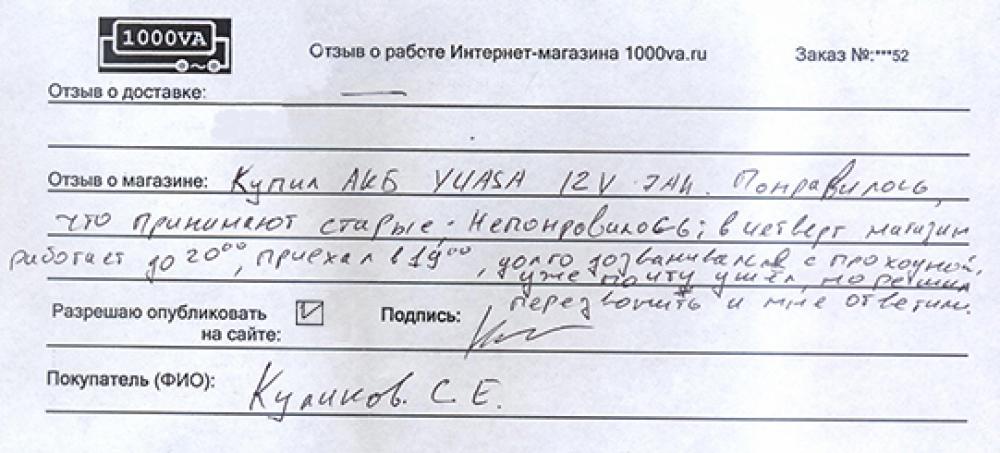 1000VA
Отзыв о работе Интернет-магазина 1000va.ru Заказ №:***52
Отзыв о доставке: —
Отзыв о магазине: Купил АКБ YUASA 12V 7Ah. Понравилось,
что принимают старые. Непонровилось; в четверг магазин
работает до 20⁰⁰, приехал в 19⁰⁰, долго дозванивался с проходной,
уже почту ушёл, но решил
перезвонить и мне ответили.
Разрешаю опубликовать
на сайте: ☑ Подпись:
Покупатель (ФИО): Куликов. С. Е.